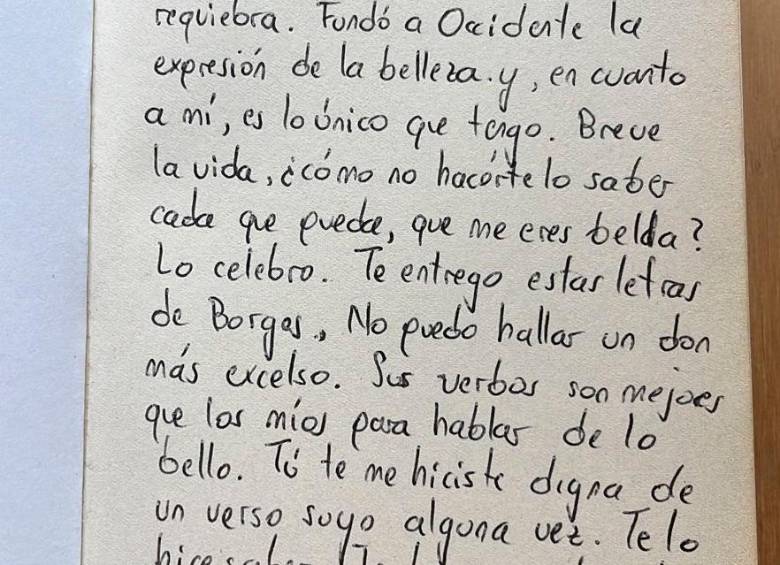 requiebra. Fundó a Occidente la
expresión de la belleza. y, en cuanto
a mí, es lo único que tengo. Breve
la vida, ¿cómo no hacértelo saber
cada que pueda, que me eres belda?
Lo celebro. Te entrego estas letras
de Borges. No puedo hallar un don
más excelso. Sus verbos son mejores
que los míos para hablar de lo
bello. Tú te me hiciste digna de
un verso suyo alguna vez. Te lo
hice